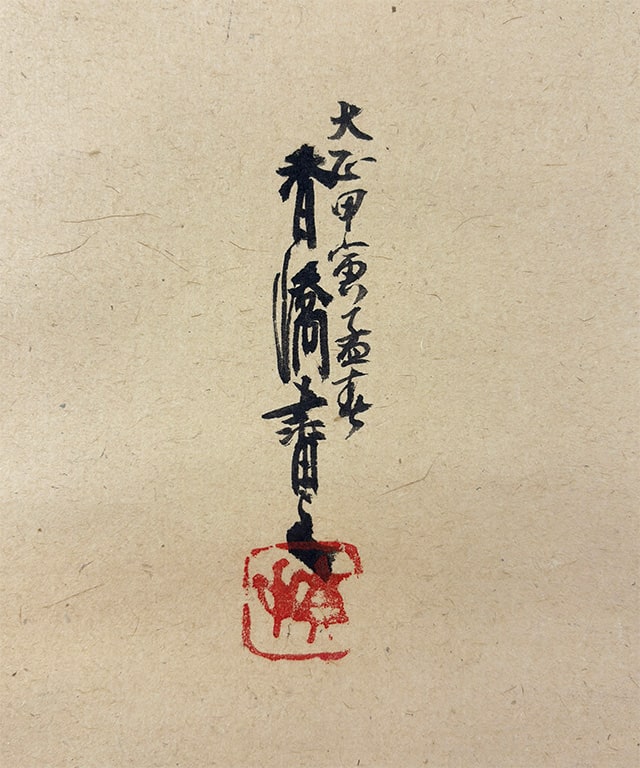 大正甲寅孟春
香 書之